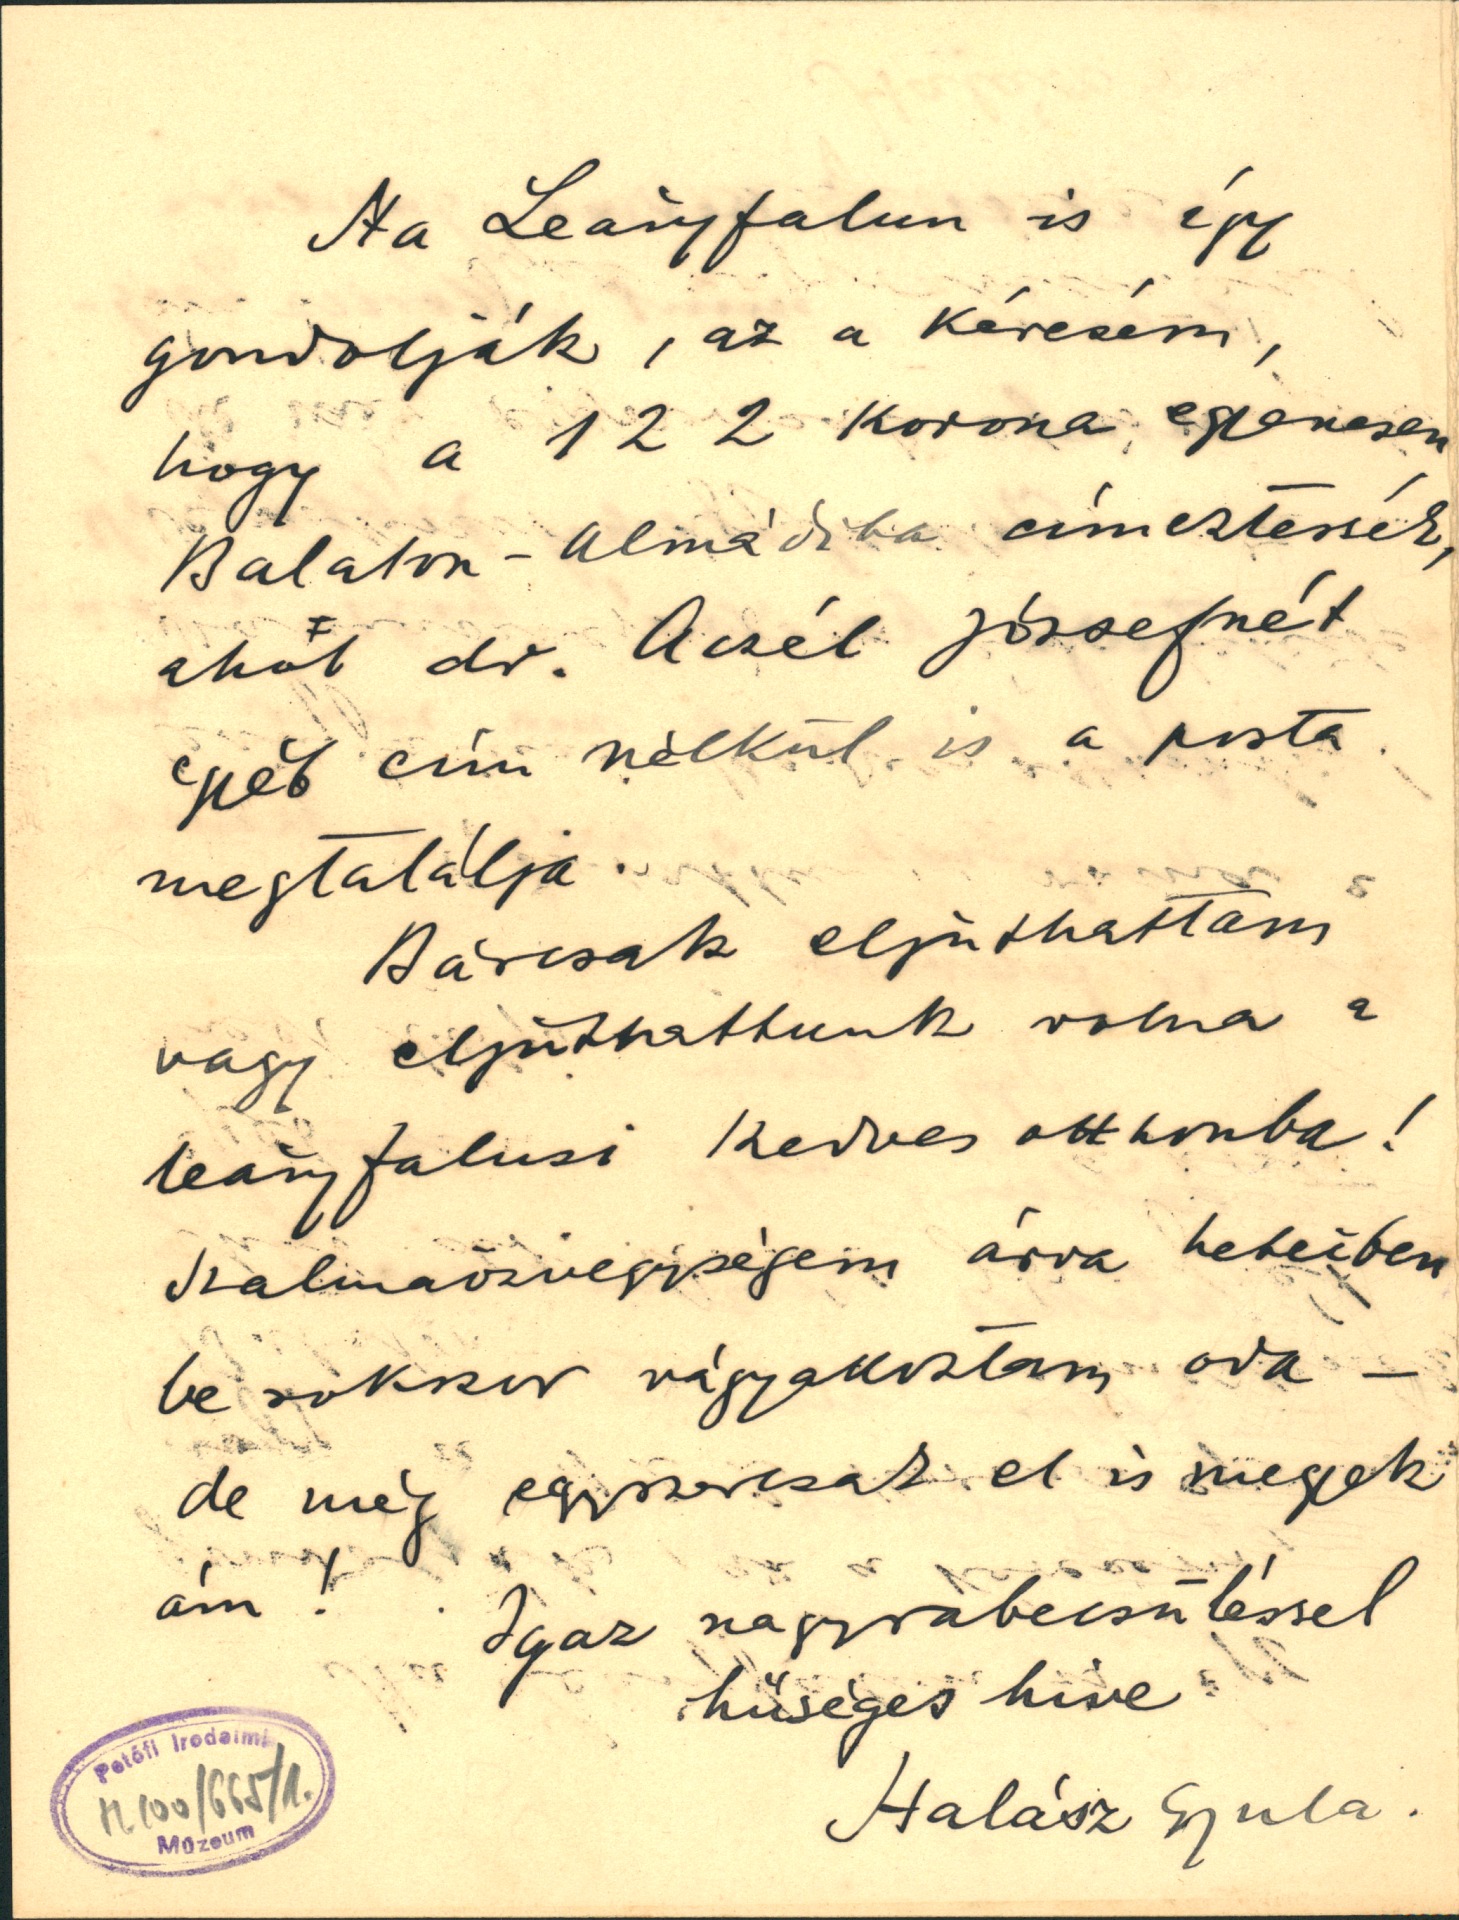 Ha Leányfalun is így
gondolják, az a kérésém,
hogy a 122 korona egyenesen
Balaton-Almádiba címeztessék,
ahol dr. Aczél Józsefnét
egyéb cím nélkül is a posta
megtalálja.
Bárcsak eljuthattam
vagy eljuthattunk volna a
leányfalusi kedves otthonba!
Szalmaözvegységem árva heteiben
be sokszor vágyakoztam oda –
de még egyszercsak el is megyek
ám!
Igaz nagyrabecsüléssel
hűséges híve
Halász Gyula.
Petőfi Irodalmi
Múzeum